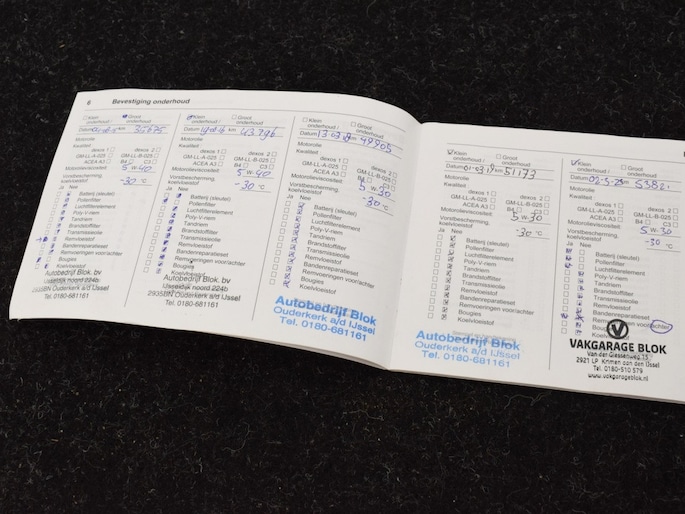 6 Bevestiging onderhoud
Klein onderhoud / Groot onderhoud
Datum km 35675
Motorolie
Kwaliteit
dexos 1 dexos 2
GM-LL-A-025 GM-LL-B-025
ACEA A3 B4 C3
Motorolieviscositeit: 5 W-40
Vorstbescherming,
koelvloeistof -30 °C
Ja Nee
Batterij (sleutel)
Pollenfilter
Luchtfilterelement
Poly-V-riem
Tandriem
Brandstoffilter
Transmissieolie
Remvloeistof
Bandenreparatieset
Remvoeringen voor/achter
Bougies
Koelvloeistof
Autobedrijf Blok. bv
IJsseldijk noord 224b
2935BN Ouderkerk a/d IJssel
Tel. 0180-681161
Klein onderhoud / Groot onderhoud
Datum km 43796
Motorolie
Kwaliteit
dexos 1 dexos 2
GM-LL-A-025 GM-LL-B-025
ACEA A3 B4 C3
Motorolieviscositeit: 5 W-40
Vorstbescherming,
koelvloeistof -30 °C
Ja Nee
Batterij (sleutel)
Pollenfilter
Luchtfilterelement
Poly-V-riem
Tandriem
Brandstoffilter
Transmissieolie
Remvloeistof
Bandenreparatieset
Remvoeringen voor/achter
Bougies
Koelvloeistof
Autobedrijf Blok. bv
IJsseldijk noord 224b
2935BN Ouderkerk a/d IJssel
Tel. 0180-681161
Klein onderhoud / Groot onderhoud
Datum 13-03 49305
Motorolie
Kwaliteit
dexos 1 dexos 2
GM-LL-A-025 GM-LL-B-025
ACEA A3 B4 C3
Motorolieviscositeit: 5 W-30
Vorstbescherming,
koelvloeistof -30 °C
Ja Nee
Batterij (sleutel)
Pollenfilter
Luchtfilterelement
Poly-V-riem
Tandriem
Brandstoffilter
Transmissieolie
Remvloeistof
Bandenreparatieset
Remvoeringen voor/achter
Bougies
Koelvloeistof
Autobedrijf Blok
Ouderkerk a/d IJssel
Tel. 0180-681161
Klein onderhoud / Groot onderhoud
Datum 01-03 51173
Motorolie
Kwaliteit
dexos 1 dexos 2
GM-LL-A-025 GM-LL-B-025
ACEA A3 B4 C3
Motorolieviscositeit: 5 W-30
Vorstbescherming,
koelvloeistof -30 °C
Ja Nee
Batterij (sleutel)
Pollenfilter
Luchtfilterelement
Poly-V-riem
Tandriem
Brandstoffilter
Transmissieolie
Remvloeistof
Bandenreparatieset
Remvoeringen voor/achter
Bougies
Koelvloeistof
Autobedrijf Blok
Ouderkerk a/d IJssel
Tel. 0180-681161
Klein onderhoud / Groot onderhoud
Datum
Motorolie
Kwaliteit
dexos 1 dexos 2
GM-LL-A-025 GM-LL-B-025
ACEA A3 B4 C3
Motorolieviscositeit: 5 W-30
Vorstbescherming,
koelvloeistof -30 °C
Ja Nee
Batterij (sleutel)
Pollenfilter
Luchtfilterelement
Poly-V-riem
Tandriem
Brandstoffilter
Transmissieolie
Remvloeistof
Bandenreparatieset
Remvoeringen voor/achter
VAKGARAGE BLOK
Van der Giessenweg 15
2921 LP Krimpen aan den IJssel
Tel. 0180-510 579
www.vakgarageblok.nl